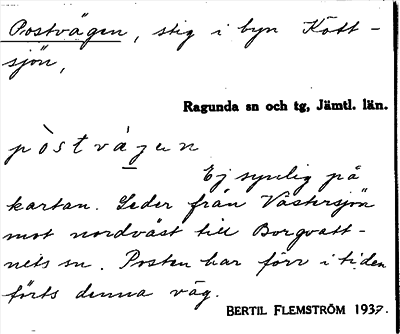 Postvägen, stig i byn Kött-
sjön,
Ragunda sn och tg, Jämtl. län.
pòstvä́gen
Ej synlig på
kartan. Leder från Västersjön
mot nordväst till Borgvatt-
nets sn. Posten har förr i tiden
förts denna väg.
BERTIL FLEMSTRÖM 1937.